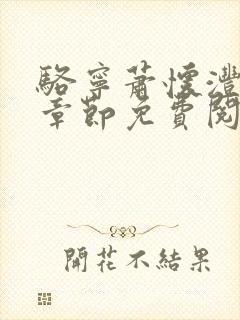 駱寧蕭懷灃
章節免費閱
開花不結果